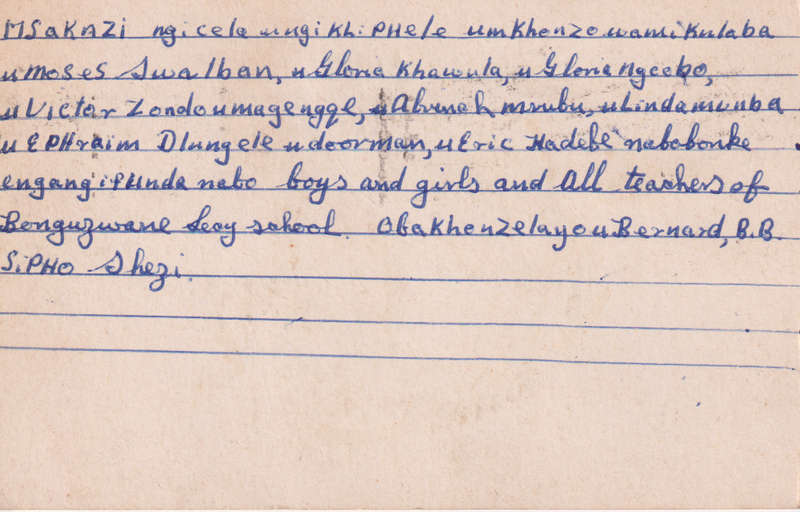 MSAKAZI ngicela ungikhiPHele umkhonzo wami kulaba
u moses Swalban, u Gloria Khawula, u Gloria Ngcobo,
u Victor Zondo umagengqe, u Alvinah mrubu, u Linda
u EPHraim Dlungele u doorman, u Eric Hadebe nabobonke
engangiPHunda nabo boys and girls and All teachers of
Bonguzwane Secy school. Obakhonzelayo u Bernard, B.B.
SiPHO Shezi.